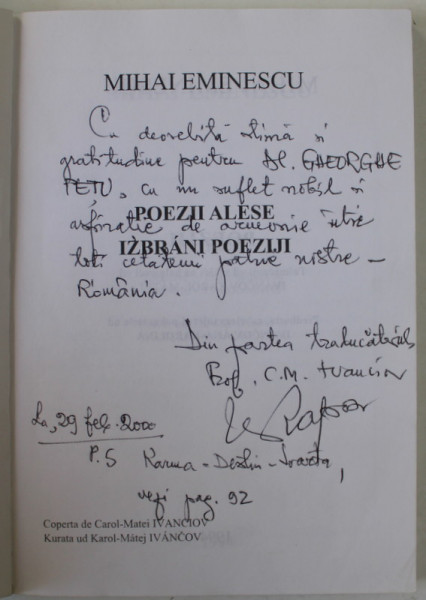 MIHAI EMINESCU
Cu deosebită stimă și
gratitudine pentru Dl. GHEORGHE
TETU, cu un suflet nobil și
aspirație de armonie între
POEZII ALESE
toți cetățenii patriei nostre –
IZBRÁNI POEZIJI
România.
Din partea traducătorului
Prof. C.M. Ivanciov
La, 29 feb. 2000
P.S Karma - Destin - Soarta,
vezi pag. 92
Coperta de Carol-Matei IVANCIOV
Kurata ud Karol-Mátej IVÁNČOV